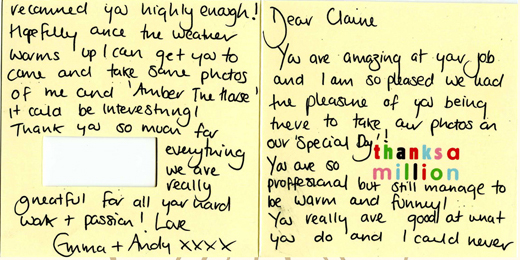 Dear Claire
You are amazing at your job
and I am so pleased we had
the pleasure of you being
there to take our photos on
our 'Special Day'!!
thanks a
million
You are so
proffesional but still manage to
be warm and funny!
You really are good at what
you do and I could never
recommed you highly enough!
Hopefully once the weather
warms up I can get you to
come and take some photos
of me and 'Amber The Horse'
it could be interesting!
Thank you so much for
everything
we are
really
greatful for all your hard
work + passion! Love
Emma + Andy xxxx